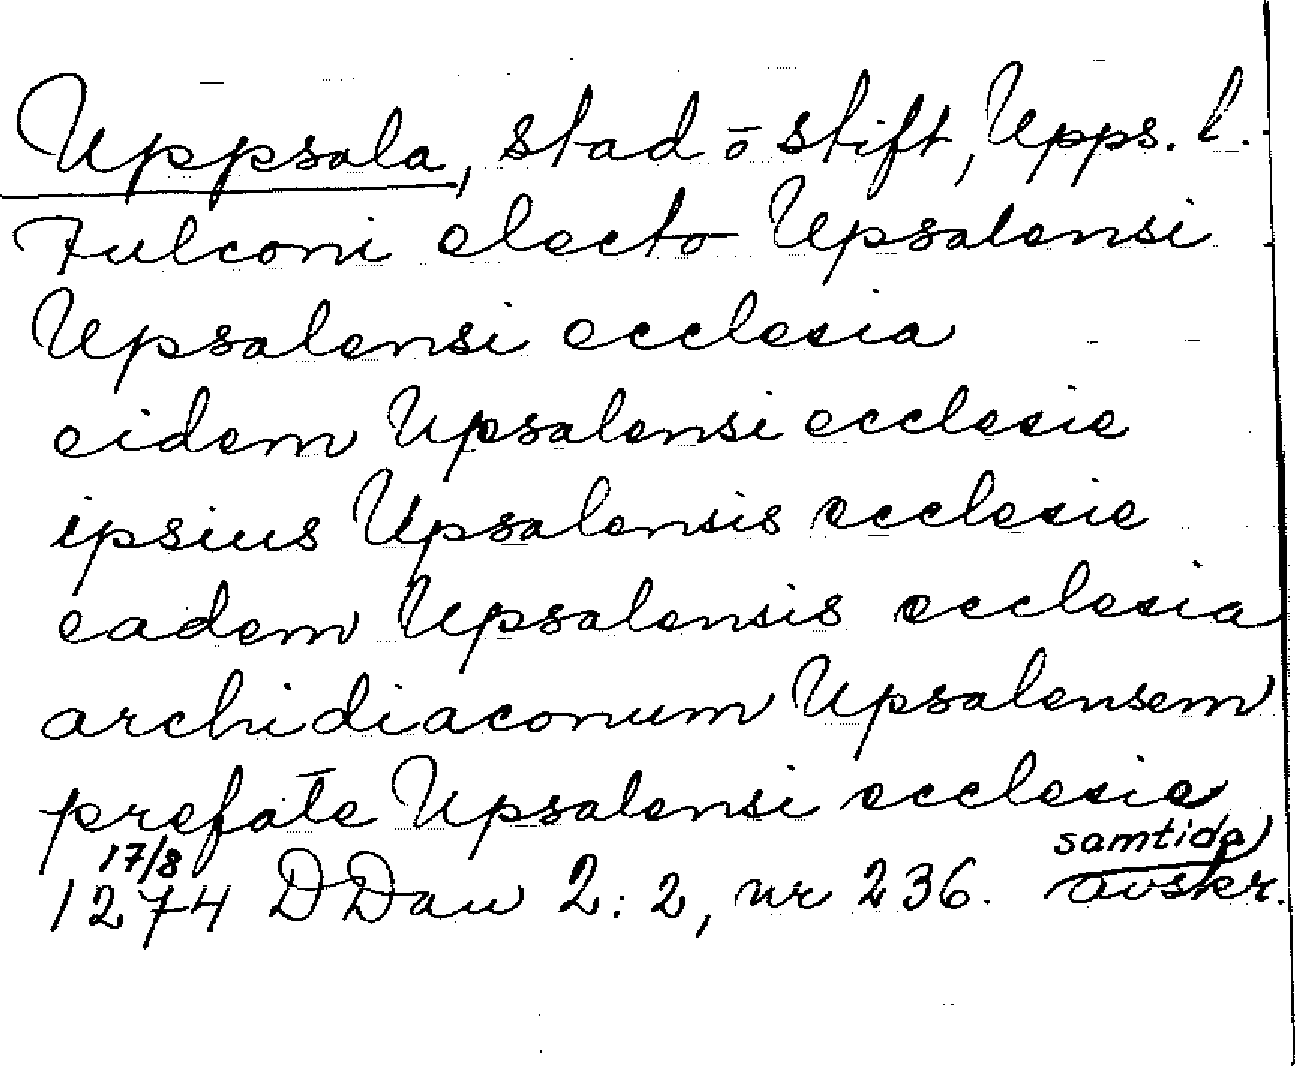 Uppsala, stad o stift, Upps. l.
Fulconi electo Upsalensi
Upsalensi ecclesia
eidem Upsalensi ecclesie
ipsius Upsalensis ecclesie
eadem Upsalensis ecclesia
archidiaconum Upsalensem
prefate Upsalensi ecclesie
17/8 samtida
1274 DDan 2:2, nr 236. avskr.